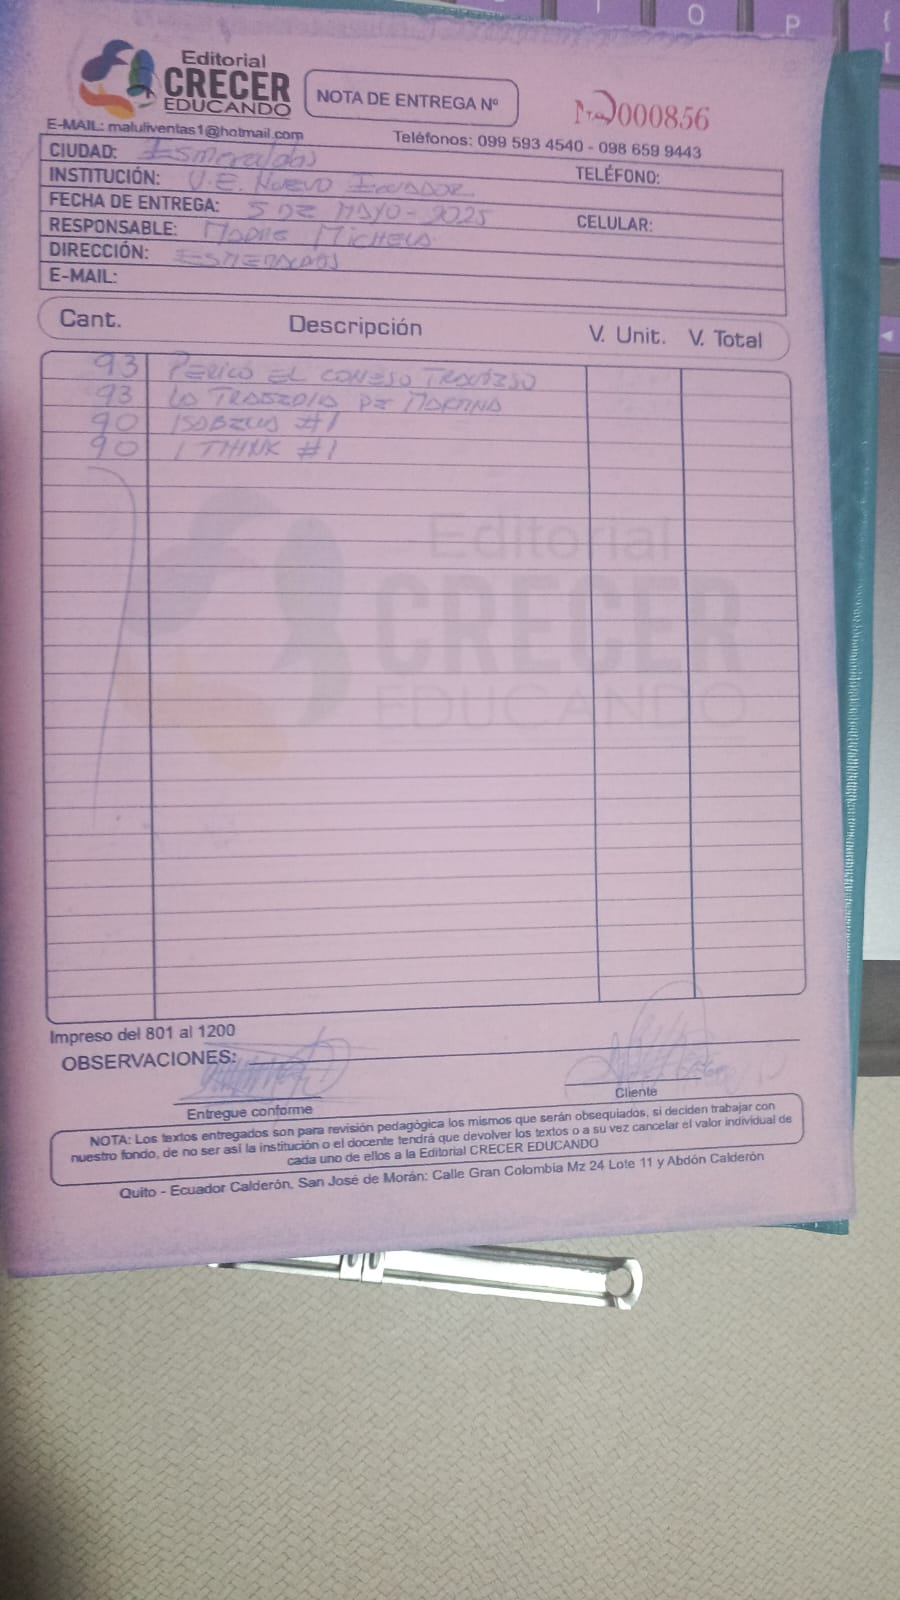 Editorial
CRECER
EDUCANDO
NOTA DE ENTREGA Nº
000856
E-MAIL: maluliventas1@hotmail.com
Teléfonos: 099 593 4540 - 098 659 9443
CIUDAD: Esmeraldas
TELÉFONO:
INSTITUCIÓN: U.E. NUEVO ECUADOR
FECHA DE ENTREGA: 5 DE MAYO - 2025
CELULAR:
RESPONSABLE: MADRE MICHELA
DIRECCIÓN: ESMERALDAS
E-MAIL:
Cant. Descripción V. Unit. V. Total
93 PERICO EL CONEJO TRAVIESO
93 LA TRAGEDIA DE MARTINA
90 ISABELLA #1
90 I THINK #1
Editorial
CRECER
EDUCANDO
Impreso del 801 al 1200
OBSERVACIONES:
Entregue conforme
Cliente
NOTA: Los textos entregados son para revisión pedagógica los mismos que serán obsequiados, si deciden trabajar con
nuestro fondo, de no ser así la institución o el docente tendrá que devolver los textos o a su vez cancelar el valor individual de
cada uno de ellos a la Editorial CRECER EDUCANDO
Quito - Ecuador Calderón, San José de Morán: Calle Gran Colombia Mz 24 Lote 11 y Abdón Calderón
O
P